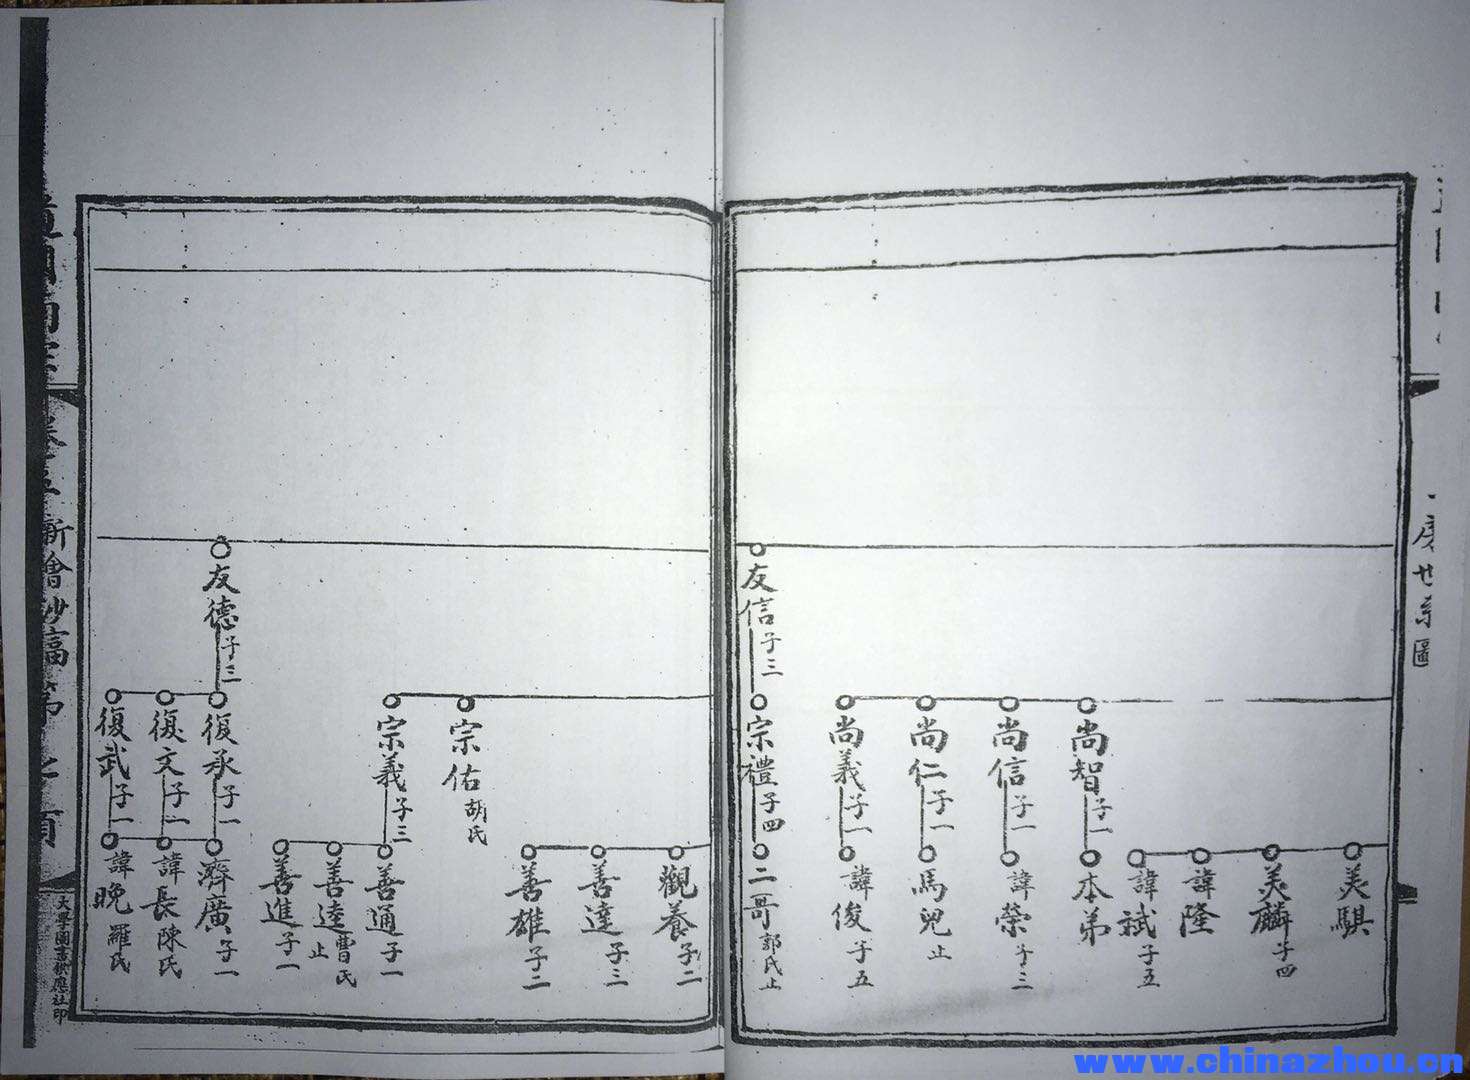 世系圖
美騏
美麟 子四
諱隆
諱試 子五
尚智 子一
本弟
尚信 子一
諱榮 子三
尚仁 子一
馬兒 止
尚義 子一
諱俊 子五
友信 子三
宗禮 子四
二哥 郭氏 止
觀養 子二
善達 子三
善雄 子二
宗佑 胡氏
宗義 子三
善通 子一
善逵 曹氏 止
善進 子一
友德 子三
復承 子一
濟廣 子一
復文 子一
諱長 陳氏
復武 子一
諱晚 羅氏
www.chinazhou.cn